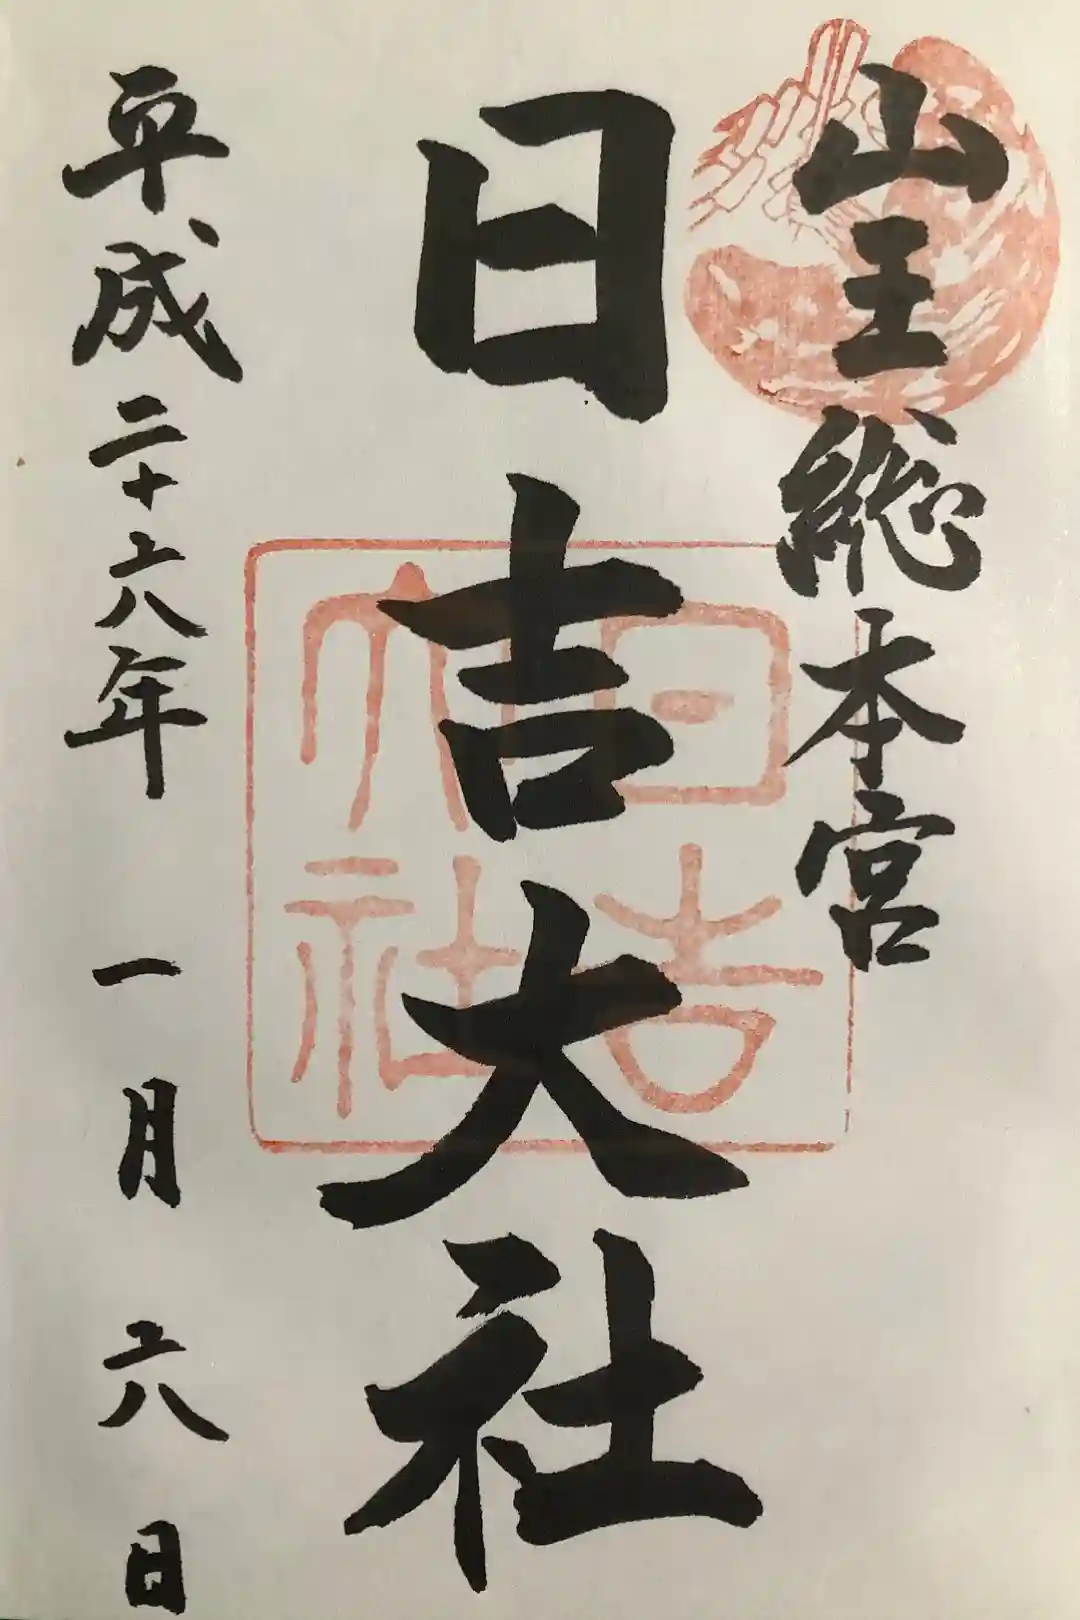 山王総本宮
日吉大社
日吉大社
平成二十六年一月六日